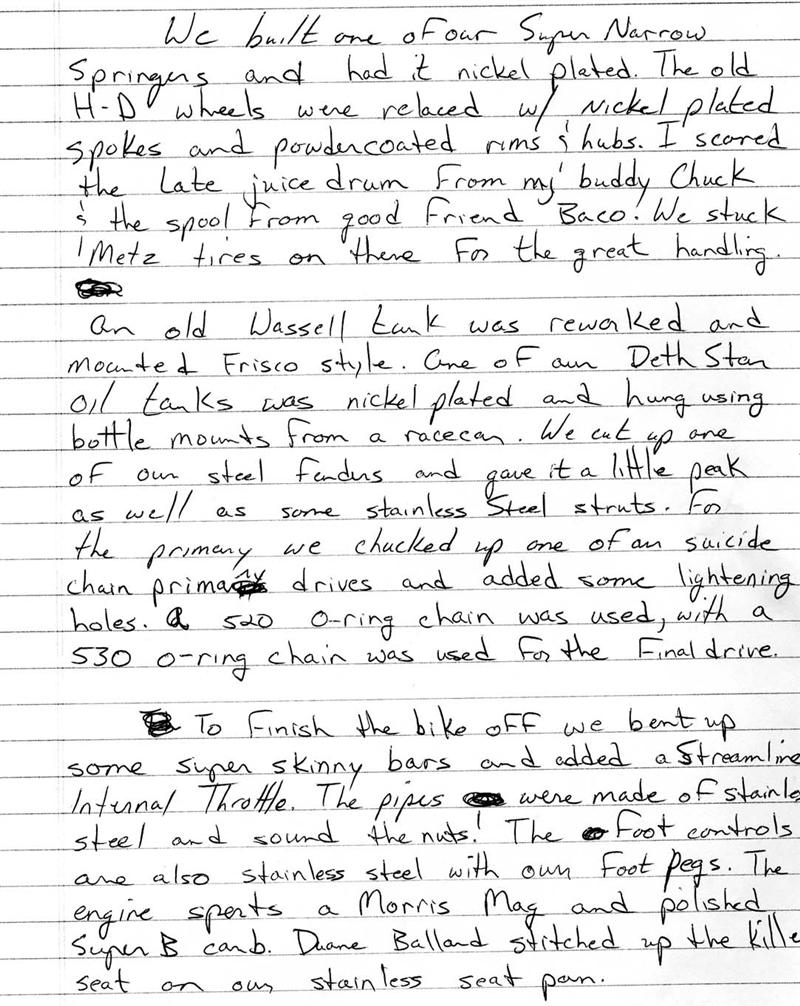 We built one of our Super Narrow
Springers and had it nickel plated. The old
H-D wheels were relaced w/ Nickel plated
spokes and powdercoated rims & hubs. I scored
the Late juice drum From my buddy Chuck
& the spool From good Friend Baco. We stuck
Metz tires on there For the great handling.
An old Wassell tank was reworked and
mounted Frisco style. One of our Deth Star
oil tanks was nickel plated and hung using
bottle mounts from a racecar. We cut up one
of our steel fenders and gave it a little peak
as well as some stainless Steel struts. For
the primary we chucked up one of our suicide
chain primary drives and added some lightening
holes. A 520 O-ring chain was used, with a
530 o-ring chain was used For the Final drive.
To Finish the bike off we bent up
some super skinny bars and added a Streamline
Internal Throttle. The pipes were made of stainle
steel and sound the nuts! The Foot controls
are also stainless steel with our Foot pegs. The
engine sports a Morris Mag and polished
Super B carb. Duane Ballard stitched up the Kille
seat on our stainless seat pan.